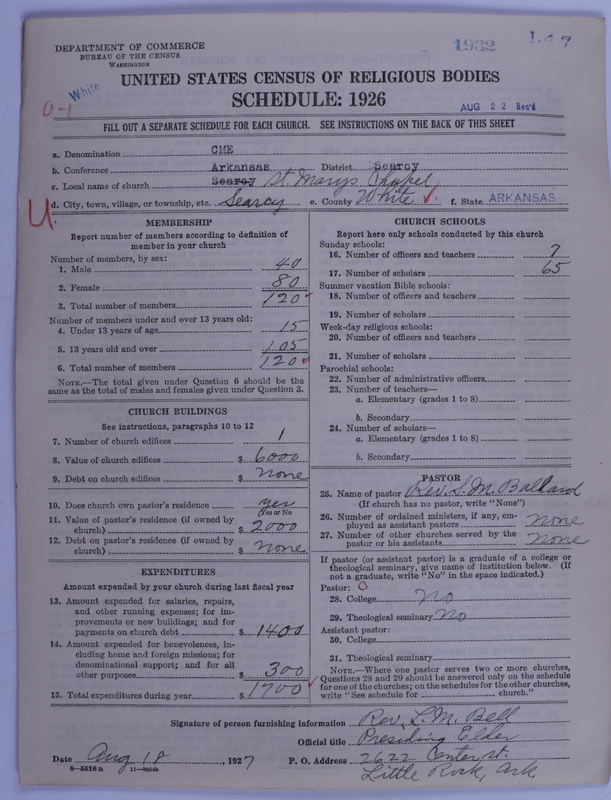 DEPARTMENT OF COMMERCE
BUREAU OF THE CENSUS
WASHINGTON
1932
1.47
White
UNITED STATES CENSUS OF RELIGIOUS BODIES
SCHEDULE: 1926
AUG 22 Rec'd
FILL OUT A SEPARATE SCHEDULE FOR EACH CHURCH. SEE INSTRUCTIONS ON THE BACK OF THIS SHEET
a. Denomination CME
b. Conference Arkansas District Searcy
c. Local name of church Searcy St. Marys Chapel
U. d. City, town, village, or township, etc. Searcy e. County White f. State ARKANSAS
MEMBERSHIP
Report number of members according to definition of
member in your church
Number of members, by sex:
1. Male 40
2. Female 80
3. Total number of members 120
Number of members under and over 13 years old:
4. Under 13 years of age 15
5. 13 years old and over 105
6. Total number of members 120
NOTE.—The total given under Question 6 should be the
same as the total of males and females given under Question 3.
CHURCH BUILDINGS
See instructions, paragraphs 10 to 12
7. Number of church edifices 1
8. Value of church edifices $ 6000
9. Debt on church edifices $ none
10. Does church own pastor's residence yes
(Yes or No)
11. Value of pastor's residence (if owned by
church) $ 2000
12. Debt on pastor's residence (if owned by
church) $ none
EXPENDITURES
Amount expended by your church during last fiscal year
13. Amount expended for salaries, repairs,
and other running expenses; for im-
provements or new buildings; and for
payments on church debt $ 1400
14. Amount expended for benevolences, in-
cluding home and foreign missions; for
denominational support; and for all
other purposes $ 300
15. Total expenditures during year $ 1700
CHURCH SCHOOLS
Report here only schools conducted by this church
Sunday schools:
16. Number of officers and teachers 7
17. Number of scholars 65
Summer vacation Bible schools:
18. Number of officers and teachers
19. Number of scholars
Week-day religious schools:
20. Number of officers and teachers
21. Number of scholars
Parochial schools:
22. Number of administrative officers
23. Number of teachers—
a. Elementary (grades 1 to 8)
b. Secondary
24. Number of scholars—
a. Elementary (grades 1 to 8)
b. Secondary
PASTOR
25. Name of pastor Rev. S. M. Ballard
(If church has no pastor, write "None")
26. Number of ordained ministers, if any, em-
ployed as assistant pastors none
27. Number of other churches served by the
pastor or his assistants none
If pastor (or assistant pastor) is a graduate of a college or
theological seminary, give name of institution below. (If
not a graduate, write "No" in the space indicated.)
Pastor: O
28. College No
29. Theological seminary No
Assistant pastor:
30. College
31. Theological seminary
NOTE.—Where one pastor serves two or more churches,
Questions 28 and 29 should be answered only on the schedule
for one of the churches; on the schedules for the other churches,
write "See schedule for church."
Signature of person furnishing information Rev. L. M. Bell
Official title Presiding Elder
Date Aug 18, 1927 P. O. Address 2622 Center st.
8—5518a
Little Rock, Ark